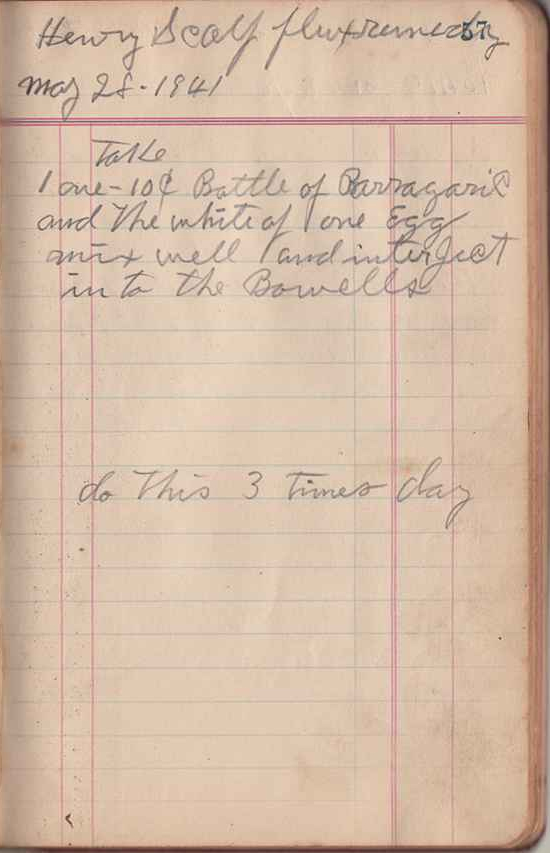 Henry Scalf flux remedy
57
may 28-1941
Take
1 one-10¢ Battle of Parragaric
and The white of one Egg
mix well and interject
in to the Bowells
do This 3 times day